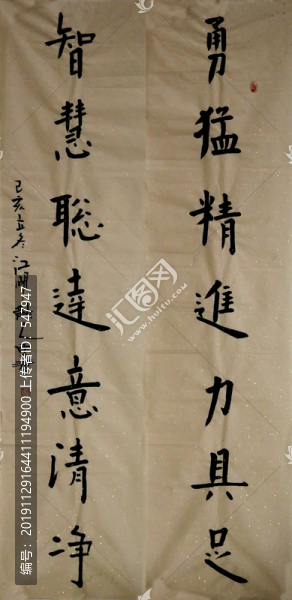 勇猛精進力具足
智慧聰達意清净
己亥立冬江湖
汇图网
www.huitu.com
编号：20191129164411194900 上传者ID：547947